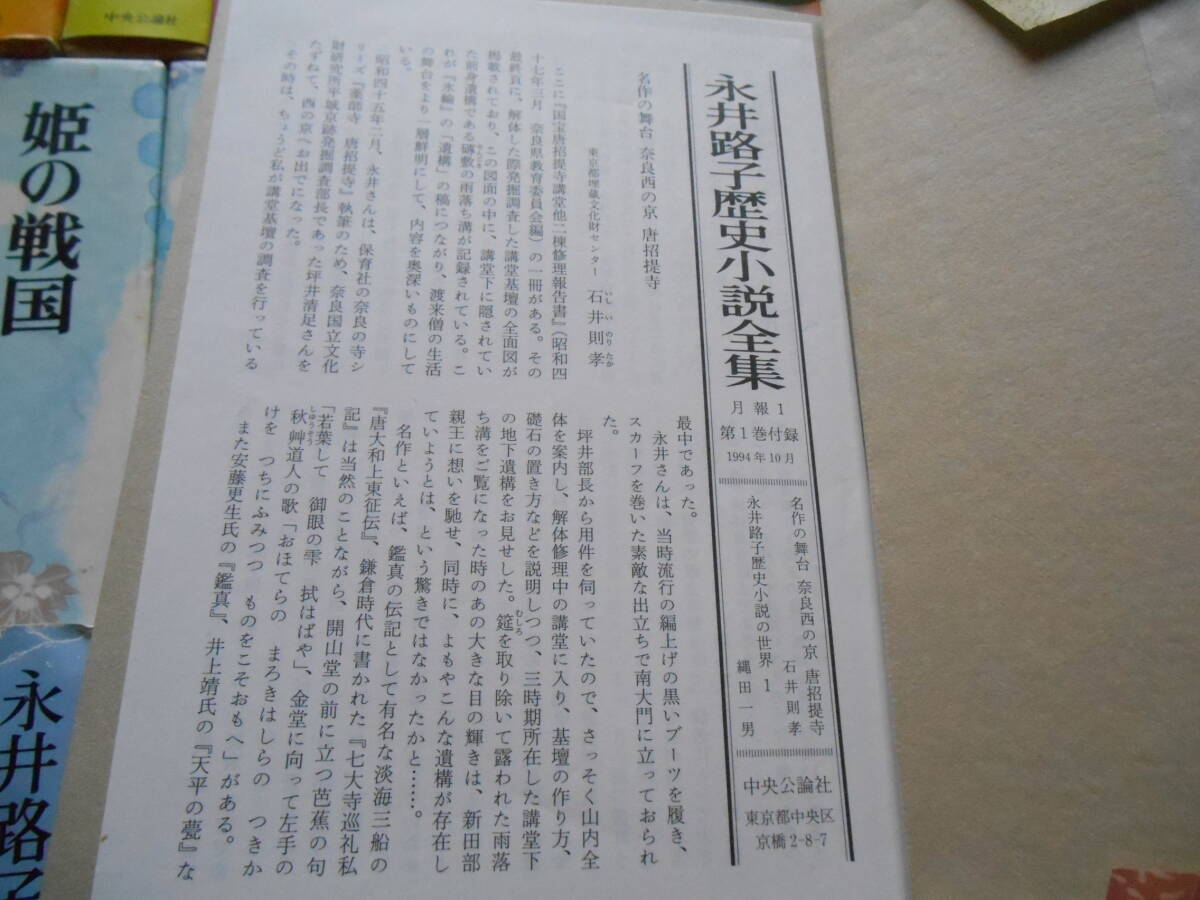 中央公論社
姫の戦国
永井路子
永井路子歴史小説全集
月報1
第1巻付録
1994年10月
名作の舞台 奈良西の京 唐招提寺
石井則孝
永井路子歴史小説の世界 1
縄田一男
中央公論社
東京都中央区
京橋2-8-7
名作の舞台 奈良西の京 唐招提寺
東京都埋蔵文化財センター 石井則孝
いしい のりたか
ここに『国宝唐招提寺講堂他二棟修理報告書』(昭和四
十七年三月 奈良県教育委員会編)の一冊がある。その
最終頁に、解体した際発掘調査した講堂基壇の全面図が
掲載されており、この図面の中に、講堂下に隠されてい
た前身遺構である磚敷の雨落ち溝が記録されている。こ
れが『氷輪』の「遺構」の稿につながり、渡来僧の生活
の舞台をより一層鮮明にして、内容を奥深いものにして
いる。
昭和四十五年二月、永井さんは、保育社の奈良の寺シ
リーズ『薬師寺 唐招提寺』執筆のため、奈良国立文化
財研究所平城京跡発掘調査部長であった坪井清足さんを
たずねて、西の京へお出でになった。
その時は、ちょうど私が講堂基壇の調査を行っている
最中であった。
永井さんは、当時流行の編上げの黒いブーツを履き、
スカーフを巻いた素敵な出立ちで南大門に立っておられ
た。
坪井部長から用件を伺っていたので、さっそく山内全
体を案内し、解体修理中の講堂に入り、基壇の作り方、
礎石の置き方などを説明しつつ、三時期所在した講堂下
の地下遺構をお見せした。筵を取り除いて露われた雨落
むしろ
ち溝をご覧になった時のあの大きな目の輝きは、新田部
親王に想いを馳せ、同時に、よもやこんな遺構が存在し
ていようとは、という驚きではなかったかと……。
名作といえば、鑑真の伝記として有名な淡海三船の
『唐大和上東征伝』、鎌倉時代に書かれた『七大寺巡礼私
記』は当然のことながら、開山堂の前に立つ芭蕉の句
「若葉して 御眼の雫 拭はばや」、金堂に向って左手の
秋艸道人の歌「おほてらの まろきはしらの つきか
しゅうそう
けを つちにふみつつ ものをこそおもへ」がある。
また安藤更生氏の『鑑真』、井上靖氏の『天平の甍』な